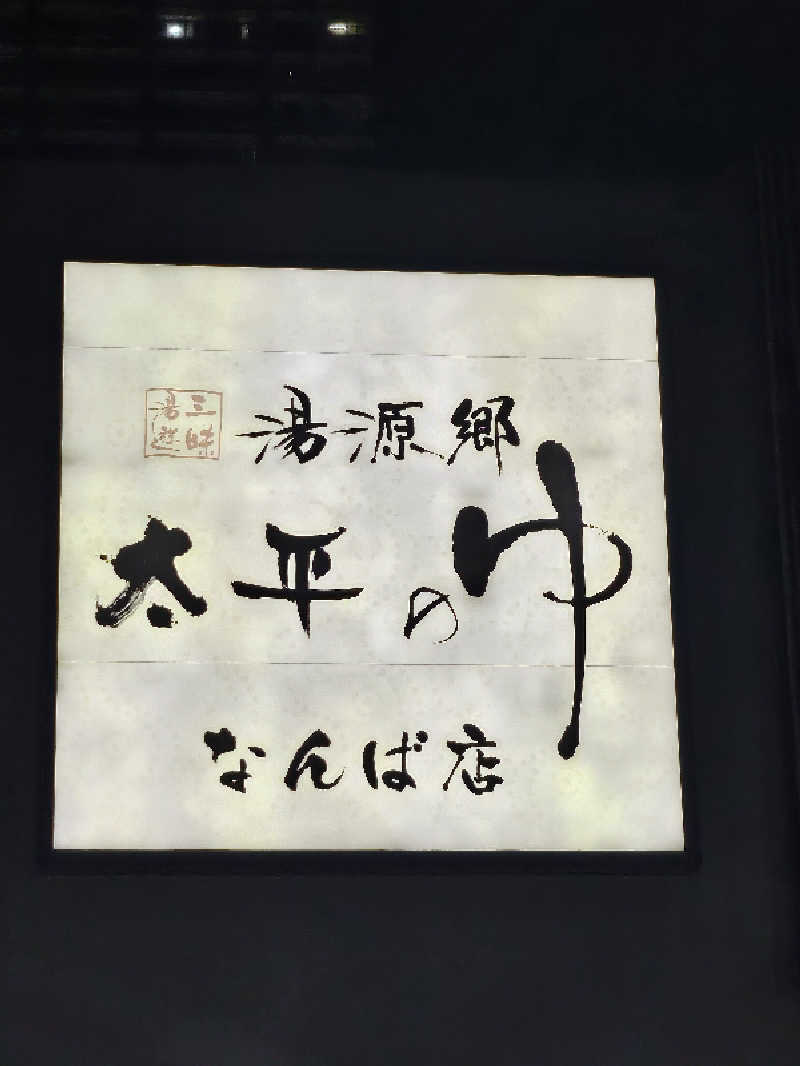 湯源郷
三昧
湯遊
太平のゆ
なんば店